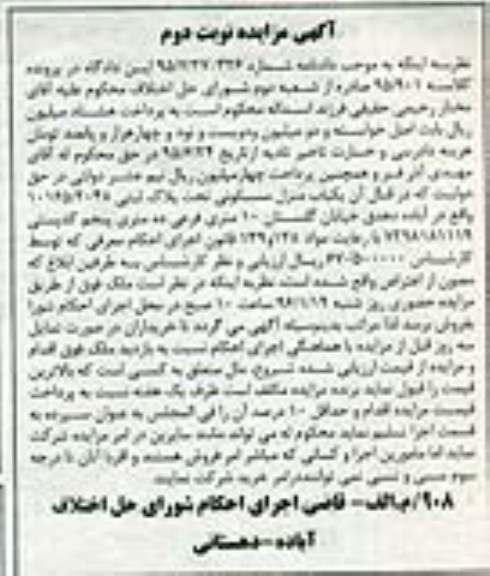 آگهی مزایده نوبت دوم
نظر به اینکه به موجب دادنامه شماره ۹۵/۷/۲۷-۳۲۶ این دادگاه در پرونده
کلاسه ۹۵/۹۰۱ صادره از شعبه دوم شورای حل اختلاف محکوم علیه آقای
مختار رحیمی حقیقی فرزند اسداله محکوم است به پرداخت هشتاد میلیون
ریال بابت اصل خواسته و دو میلیون و دویست و نود و چهار هزار و پانصد تومان
هزینه دادرسی و خسارت تاخیر تادیه از تاریخ در حق محکوم له آقای
مهدی فر و همچنین پرداخت چهار میلیون ریال نیم عشر دولتی در حق
دولت که در قبال آن یکباب منزل مسکونی تحت پلاک ثبتی
واقع در آباده خیابان گلستان ۱۰ متری فرعی ده متری پنجم کدپستی
۷۳۹۸۱۸۱۱۱۹ با رعایت مواد ۱۲۸ و ۱۳۹ قانون اجرای احکام معرفی که توسط
کارشناس ریال ارزیابی و نظر کارشناس به طرفین ابلاغ که
مصون از اعتراض واقع شده است. نظر به اینکه در نظر است ملک فوق از طریق
مزایده حضوری روز شنبه ۹۶/۱/۱۹ ساعت ۱۰ صبح در محل اجرای احکام شورا
بفروش برسد لذا مراتب بدینوسیله آگهی می گردد تا خریداران در صورت تمایل
سه روز قبل از مزایده با هماهنگی اجرای احکام نسبت به بازدید ملک فوق اقدام
و مزایده از قیمت ارزیابی شده شروع، مال متعلق به کسی است که بالاترین
قیمت را قبول نماید برنده مزایده مکلف است ظرف یک هفته نسبت به پرداخت
قیمت مزایده اقدام و حداقل ۱۰ درصد آن را فی المجلس به عنوان سپرده به
قسمت اجرا تسلیم نماید محکوم له می تواند مانند سایرین در امر مزایده شرکت
نماید اما مامورین اجرا و کسانی که مباشر امر فروش هستند و اقربا آنان تا درجه
سوم سببی و نسبی نمی توانند در امر خرید شرکت نمایند.
۹۰۸/م الف- قاضی اجرای احکام شورای حل اختلاف
آباده-دهستانی